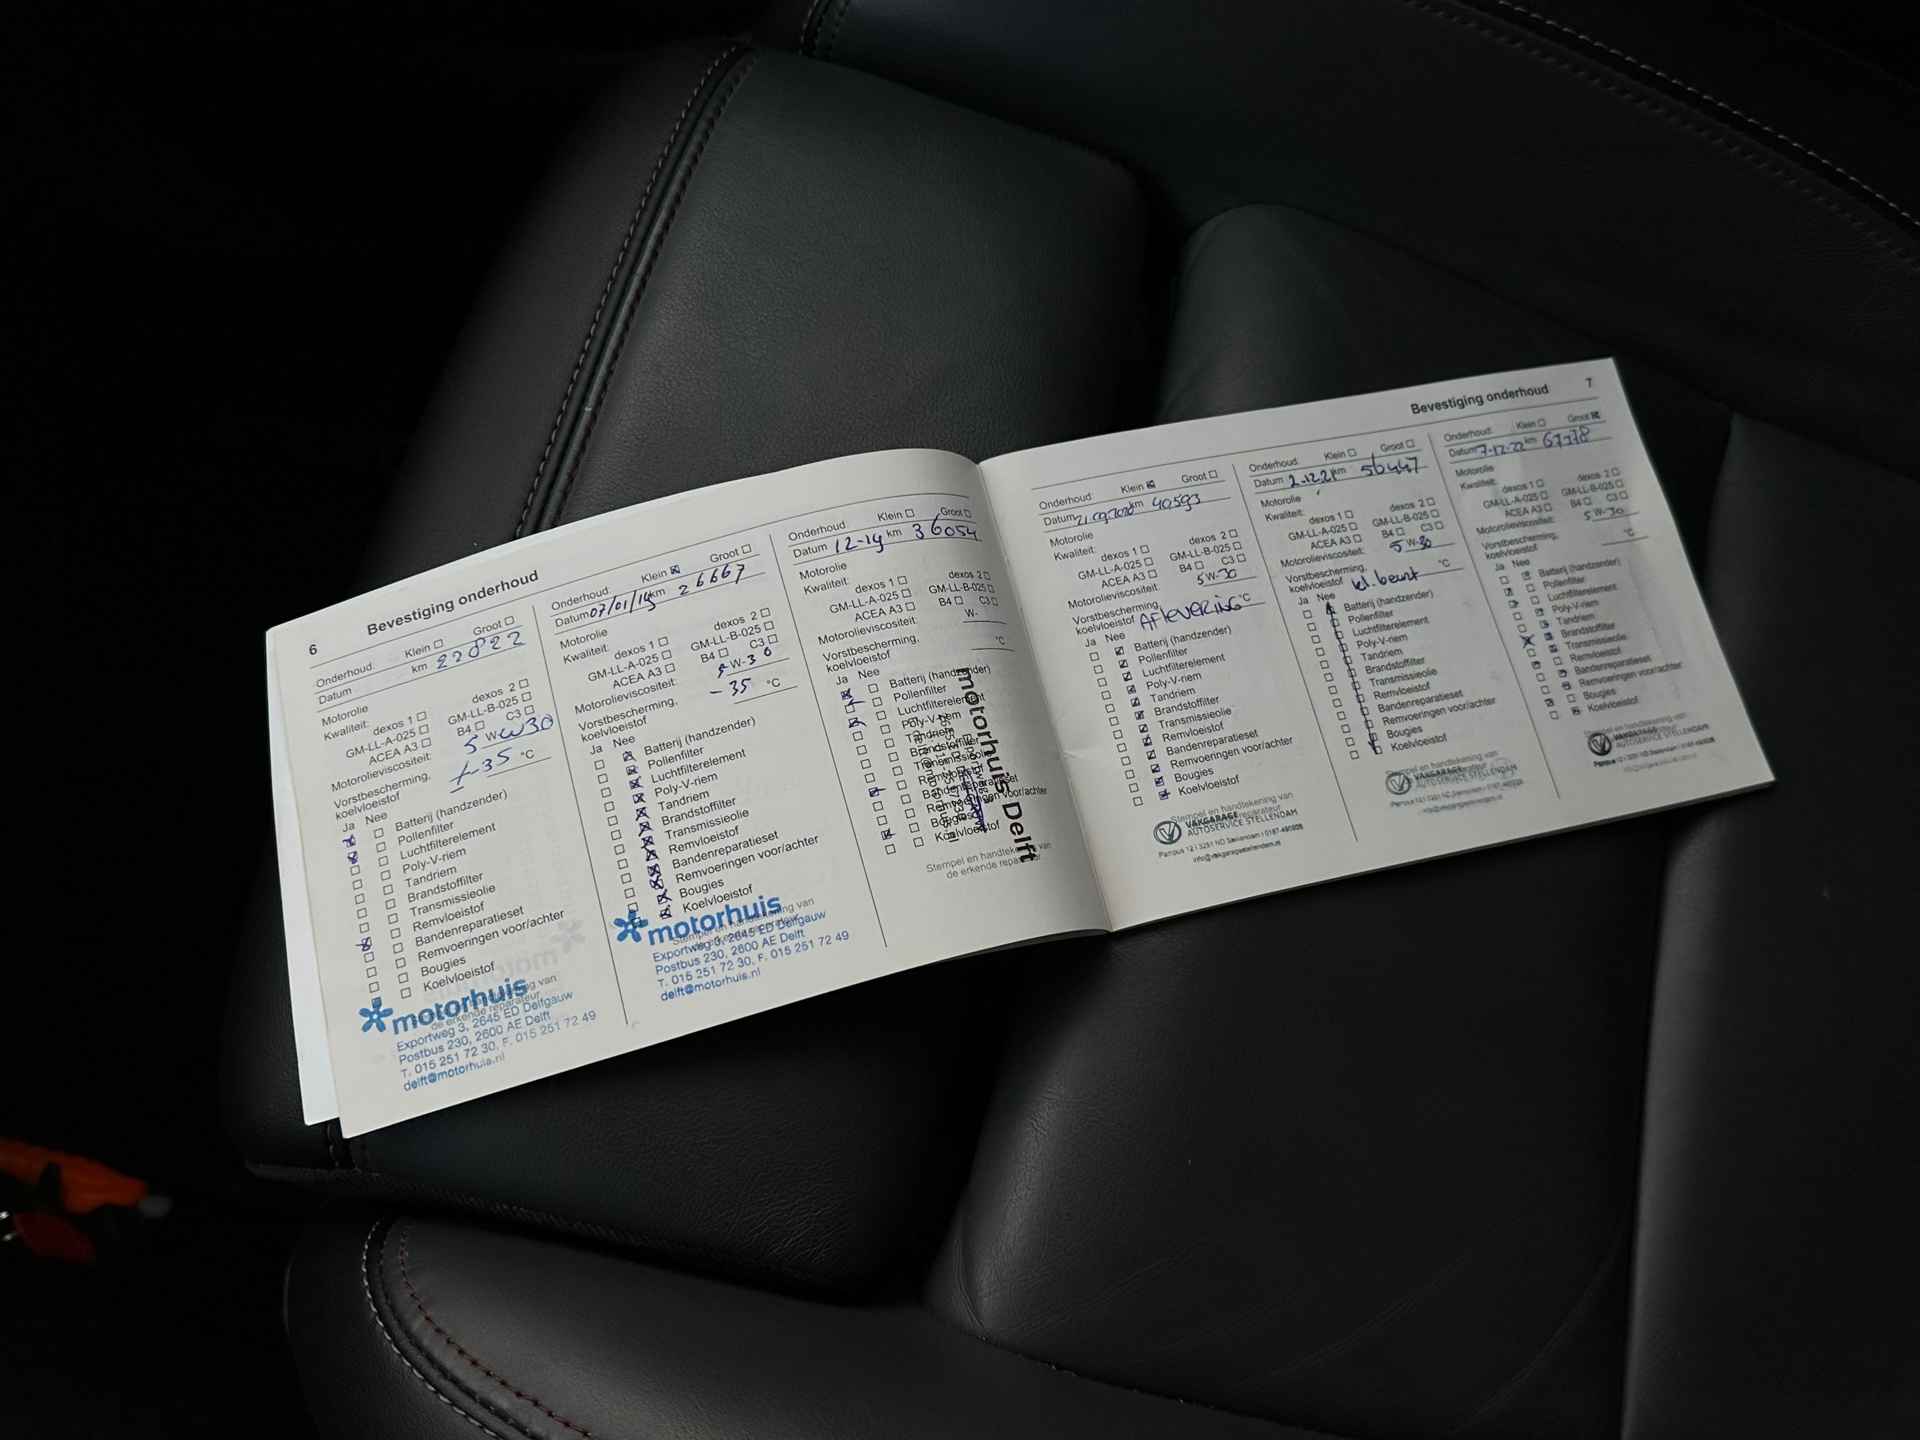 6
Bevestiging onderhoud
Onderhoud: Klein Groot
Datum km 22822
Motorolie
Kwaliteit: dexos 1 dexos 2
GM-LL-A-025 GM-LL-B-025
ACEA A3 B4 C3
Motorolieviscositeit: 5 W W30
Vorstbescherming, koelvloeistof -35 °C
Ja Nee
Batterij (handzender)
Pollenfilter
Luchtfilterelement
Poly-V-riem
Tandriem
Brandstoffilter
Transmissieolie
Remvloeistof
Bandenreparatieset
Remvoeringen voor/achter
Bougies
Koelvloeistof
motorhuis
Exportweg 3, 2645 ED Delfgauw
Postbus 230, 2600 AE Delft
T. 015 251 72 30, F. 015 251 72 49
delft@motorhuis.nl
Onderhoud: Klein Groot
Datum 07/01/19 km 26667
Motorolie
Kwaliteit: dexos 1 dexos 2
GM-LL-A-025 GM-LL-B-025
ACEA A3 B4 C3
Motorolieviscositeit: 5 W-30
Vorstbescherming, koelvloeistof -35 °C
Ja Nee
Batterij (handzender)
Pollenfilter
Luchtfilterelement
Poly-V-riem
Tandriem
Brandstoffilter
Transmissieolie
Remvloeistof
Bandenreparatieset
Remvoeringen voor/achter
Bougies
Koelvloeistof
motorhuis
Exportweg 3, 2645 ED Delfgauw
Postbus 230, 2600 AE Delft
T. 015 251 72 30, F. 015 251 72 49
delft@motorhuis.nl
Onderhoud: Klein Groot
Datum 12-19 km 36054
Motorolie
Kwaliteit: dexos 1 dexos 2
GM-LL-A-025 GM-LL-B-025
ACEA A3 B4 C3
Motorolieviscositeit: W-
Vorstbescherming, koelvloeistof °C
Ja Nee
Batterij (handzender)
Pollenfilter
Luchtfilterelement
Poly-V-riem
Tandriem
Brandstoffilter
Transmissieolie
Remvloeistof
Bandenreparatieset
Remvoeringen voor/achter
Bougies
Koelvloeistof
Stempel en handtekening van
de erkende reparateur
motorhuis Delft
Bevestiging onderhoud
7
Onderhoud: Klein Groot
Datum km 40593
Motorolie
Kwaliteit: dexos 1 dexos 2
GM-LL-A-025 GM-LL-B-025
ACEA A3 B4 C3
Motorolieviscositeit: 5 W-30
Vorstbescherming, koelvloeistof AFLEVERING °C
Ja Nee
Batterij (handzender)
Pollenfilter
Luchtfilterelement
Poly-V-riem
Tandriem
Brandstoffilter
Transmissieolie
Remvloeistof
Bandenreparatieset
Remvoeringen voor/achter
Bougies
Koelvloeistof
Stempel en handtekening van
VAKGARAGE
AUTOSERVICE STELLENDAM
info@vakgaragestellendam.nl
Onderhoud: Klein Groot
Datum 2-12-21 km 56447
Motorolie
Kwaliteit: dexos 1 dexos 2
GM-LL-A-025 GM-LL-B-025
ACEA A3 B4 C3
Motorolieviscositeit: 5 W-30
Vorstbescherming, koelvloeistof kl. beurt °C
Ja Nee
Batterij (handzender)
Pollenfilter
Luchtfilterelement
Poly-V-riem
Tandriem
Brandstoffilter
Transmissieolie
Remvloeistof
Bandenreparatieset
Remvoeringen voor/achter
Bougies
Koelvloeistof
Stempel en handtekening van
VAKGARAGE
AUTOSERVICE STELLENDAM
Onderhoud: Klein Groot
Datum 7-12-22 km 67178
Motorolie
Kwaliteit: dexos 1 dexos 2
GM-LL-A-025 GM-LL-B-025
ACEA A3 B4 C3
Motorolieviscositeit: 5 W-30
Vorstbescherming, koelvloeistof °C
Ja Nee
Batterij (handzender)
Pollenfilter
Luchtfilterelement
Poly-V-riem
Tandriem
Brandstoffilter
Transmissieolie
Remvloeistof
Bandenreparatieset
Remvoeringen voor/achter
Bougies
Koelvloeistof
Stempel en handtekening van
VAKGARAGE
AUTOSERVICE STELLENDAM